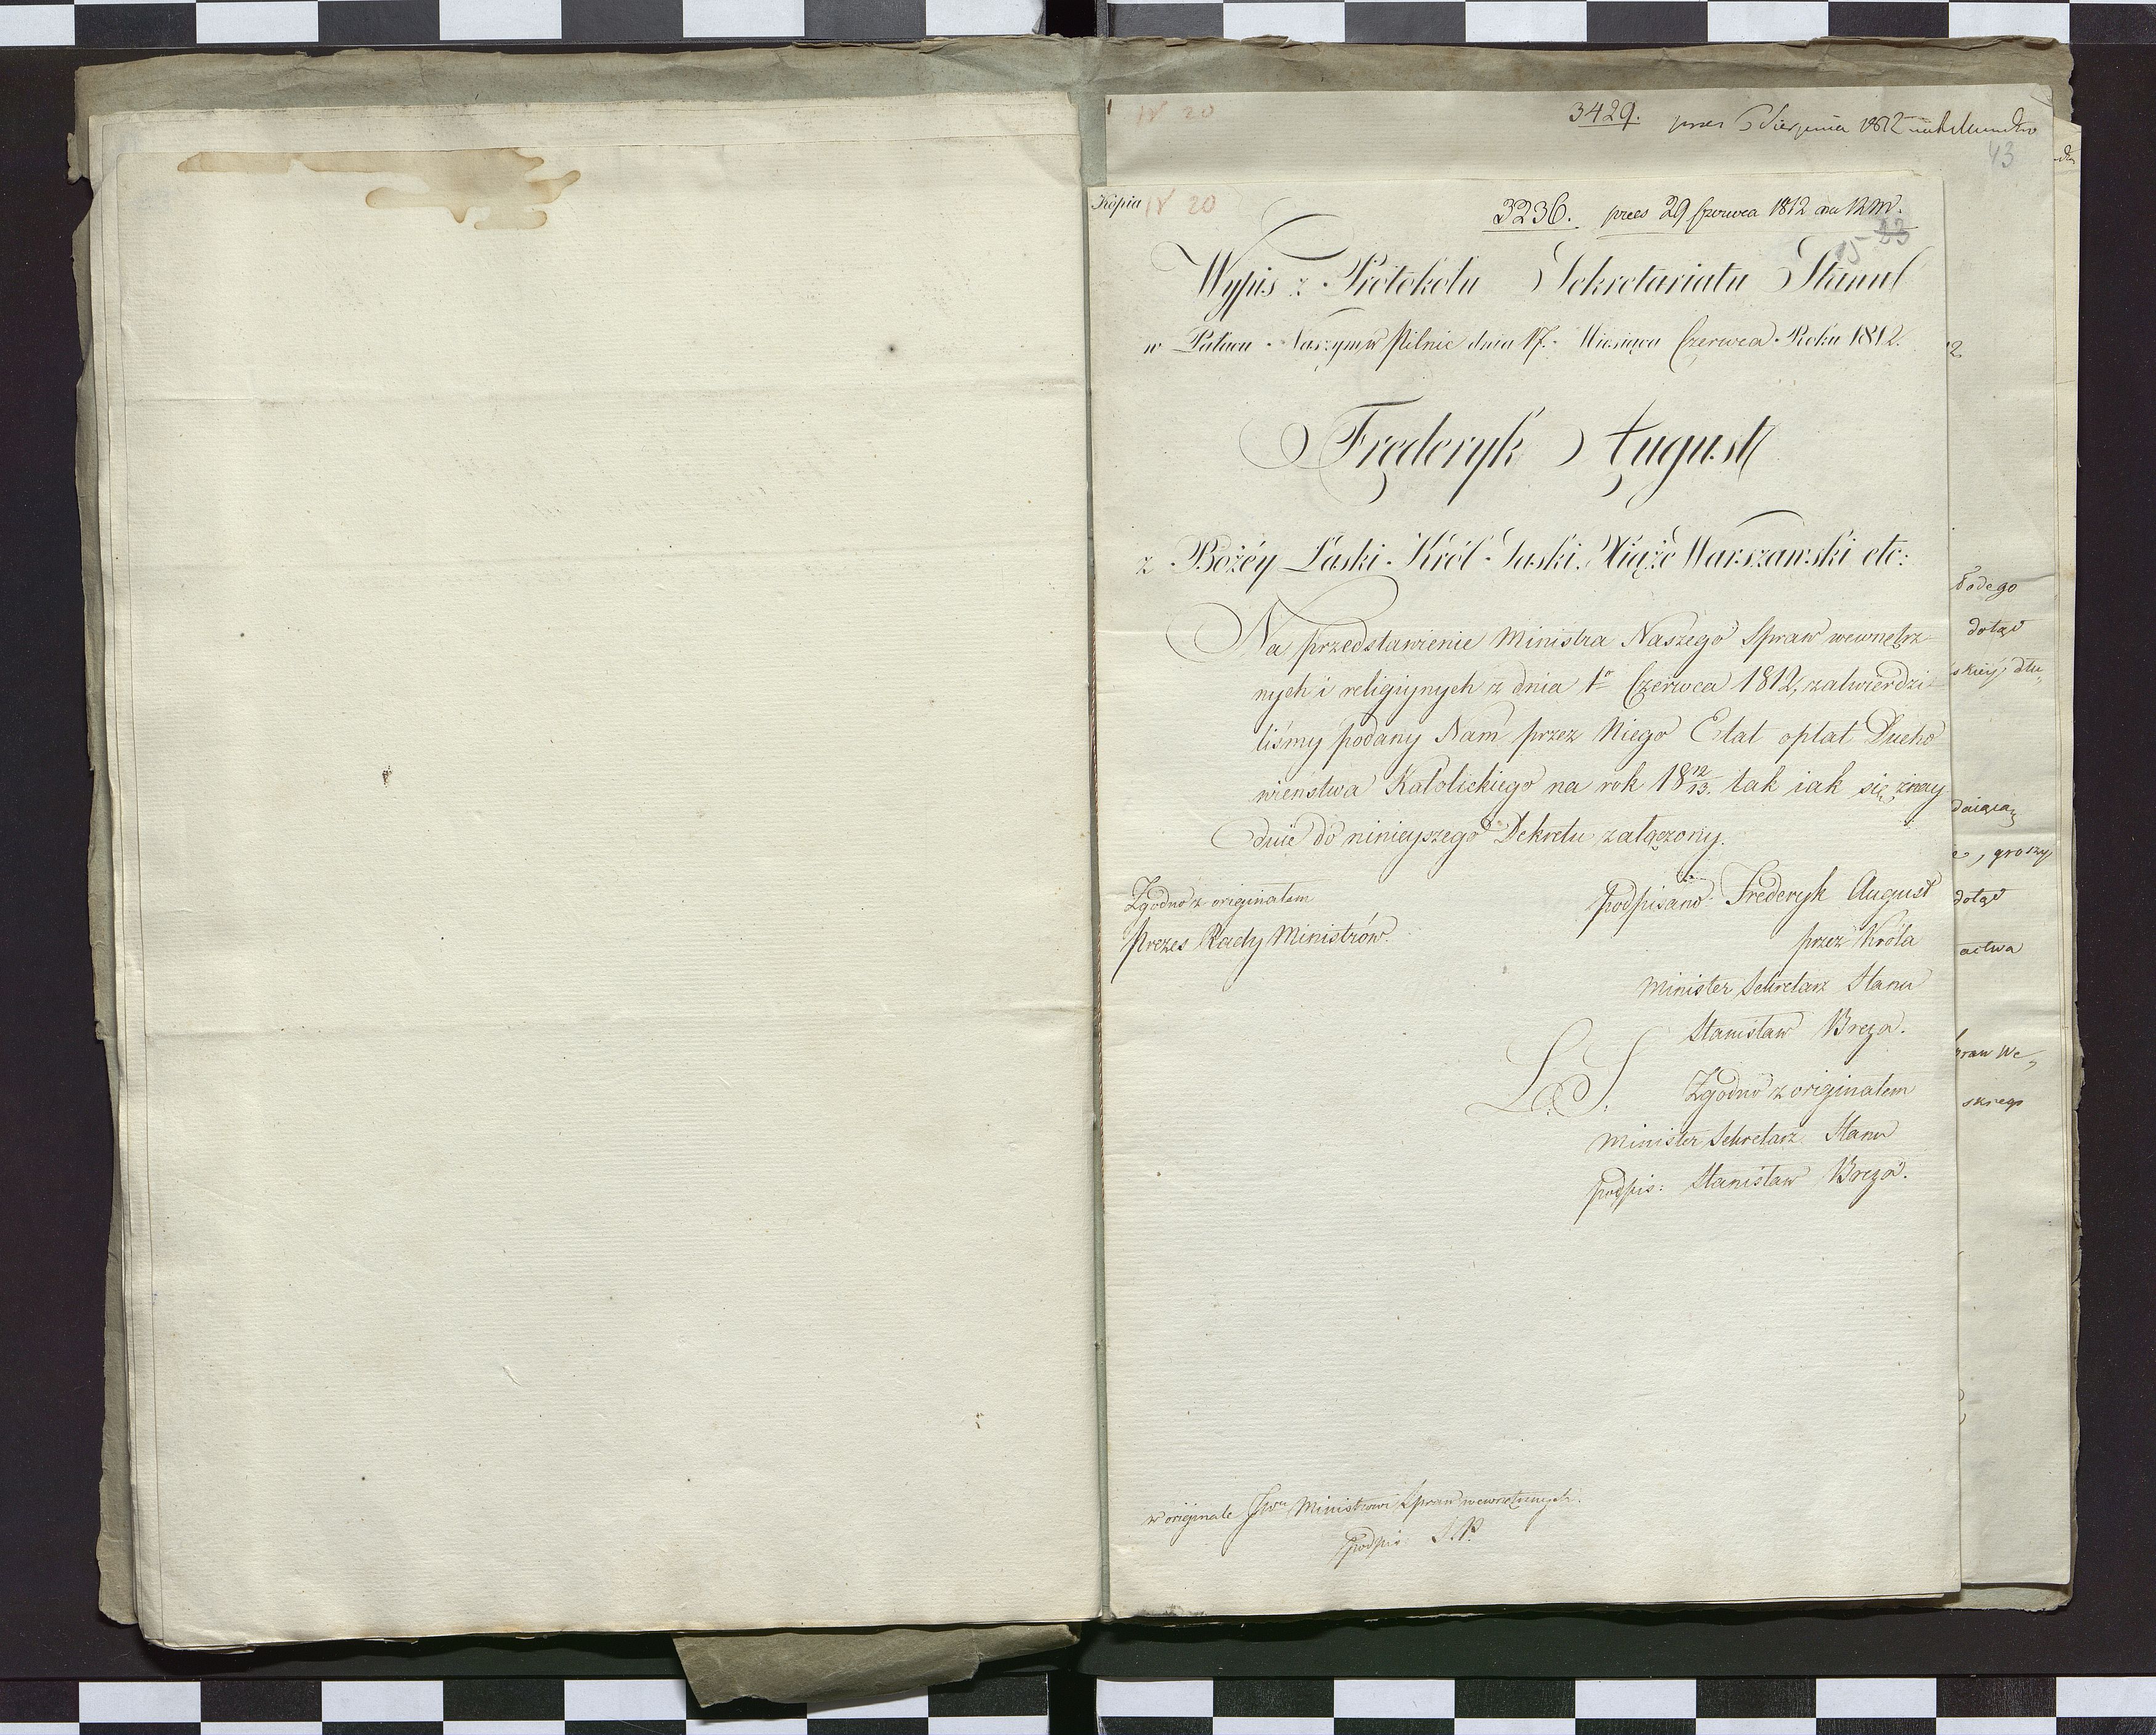 IV 20
3429. prez 5 Sierpnia 1812
43
Kopia IV 20
3236. prez 29 Czerwca 1812 na RM.
15 23
Wypis z Protokołu Sekretariatu Stanu
w Pałacu Naszym w Pilnic dnia 17. Miesiąca Czerwca Roku 1812.
Fręderyk August
z Bożéy Łaski Król Saski, Xiąże Warszawski etc:
Na przedstawienie Ministra Naszego Spraw wewnętrz
nych i religiynych z dnia 1o Czerwca 1812, zatwierdzi
liśmy podany Nam przez Niego Etat opłat Ducho
wieństwa Katolickiego na rok 18 12/13. tak iak się znay
duie do ninieyszego Dekretu załączony.
Zgodno z originałem
Prezes Rady Ministrów.
podpisano Frederyk August
przez Króla
Minister Sekretarz Stanu
Stanisław Breza.
L. S.
Zgodno z originałem
Minister Sekretarz Stanu
podpis: Stanisław Breza.
w originale JWu Ministrowi Spraw wewnętrznych.
podpis S. P.
2
dotąd
skiey, dłu„
daiącą
, groszy
dotąd
actwa
praw We„
skiego